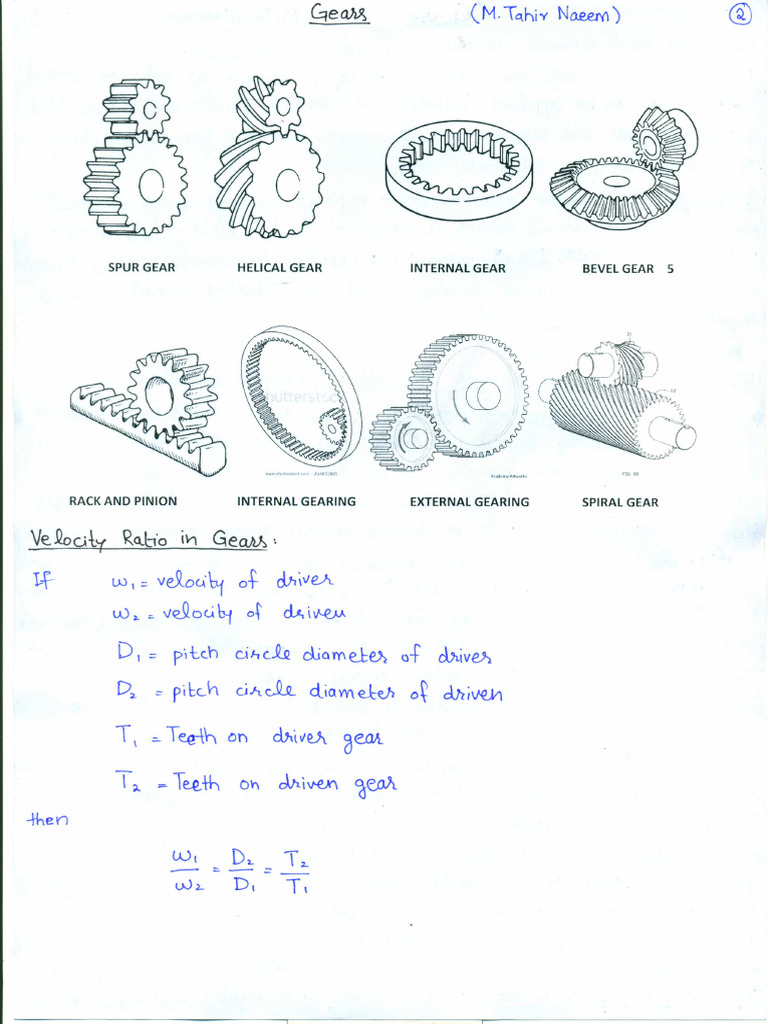 Gears (M. Tahir Naeem) 2
SPUR GEAR HELICAL GEAR INTERNAL GEAR BEVEL GEAR 5
shutterstock
RACK AND PINION INTERNAL GEARING EXTERNAL GEARING SPIRAL GEAR
Velocity Ratio in Gears:
If ω1 = velocity of driver
ω2 = velocity of driven
D1 = pitch circle diameter of driver
D2 = pitch circle diameter of driven
T1 = Teeth on driver gear
T2 = Teeth on driven gear
then
ω1/ω2 = D2/D1 = T2/T1